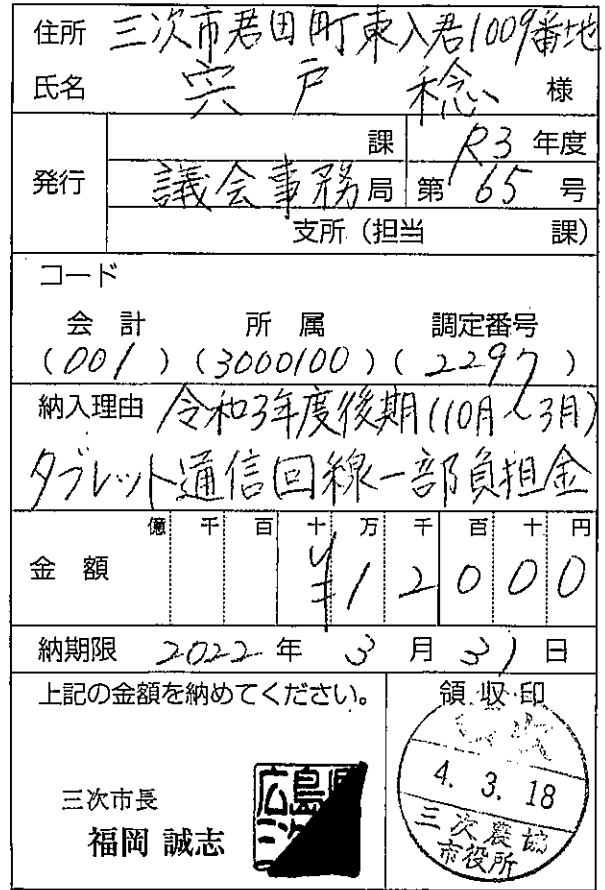 住所 三次市君田町東入君1009番地
氏名 宍戸 稔 様
課 R3 年度
発行 議会事務局 第 65 号
支所(担当 課)
コード
会計 所属 調定番号
(001) (3000100) (2297)
納入理由 令和3年度後期(10月~3月)
タブレット通信回線一部負担金
億 千 百 十 万 千 百 十 円
金額 ¥12000
納期限 2022年 3月 31日
上記の金額を納めてください。
三次市長
福岡 誠志
広島県
三次
領収印
4. 3. 18
三次農協
市役所